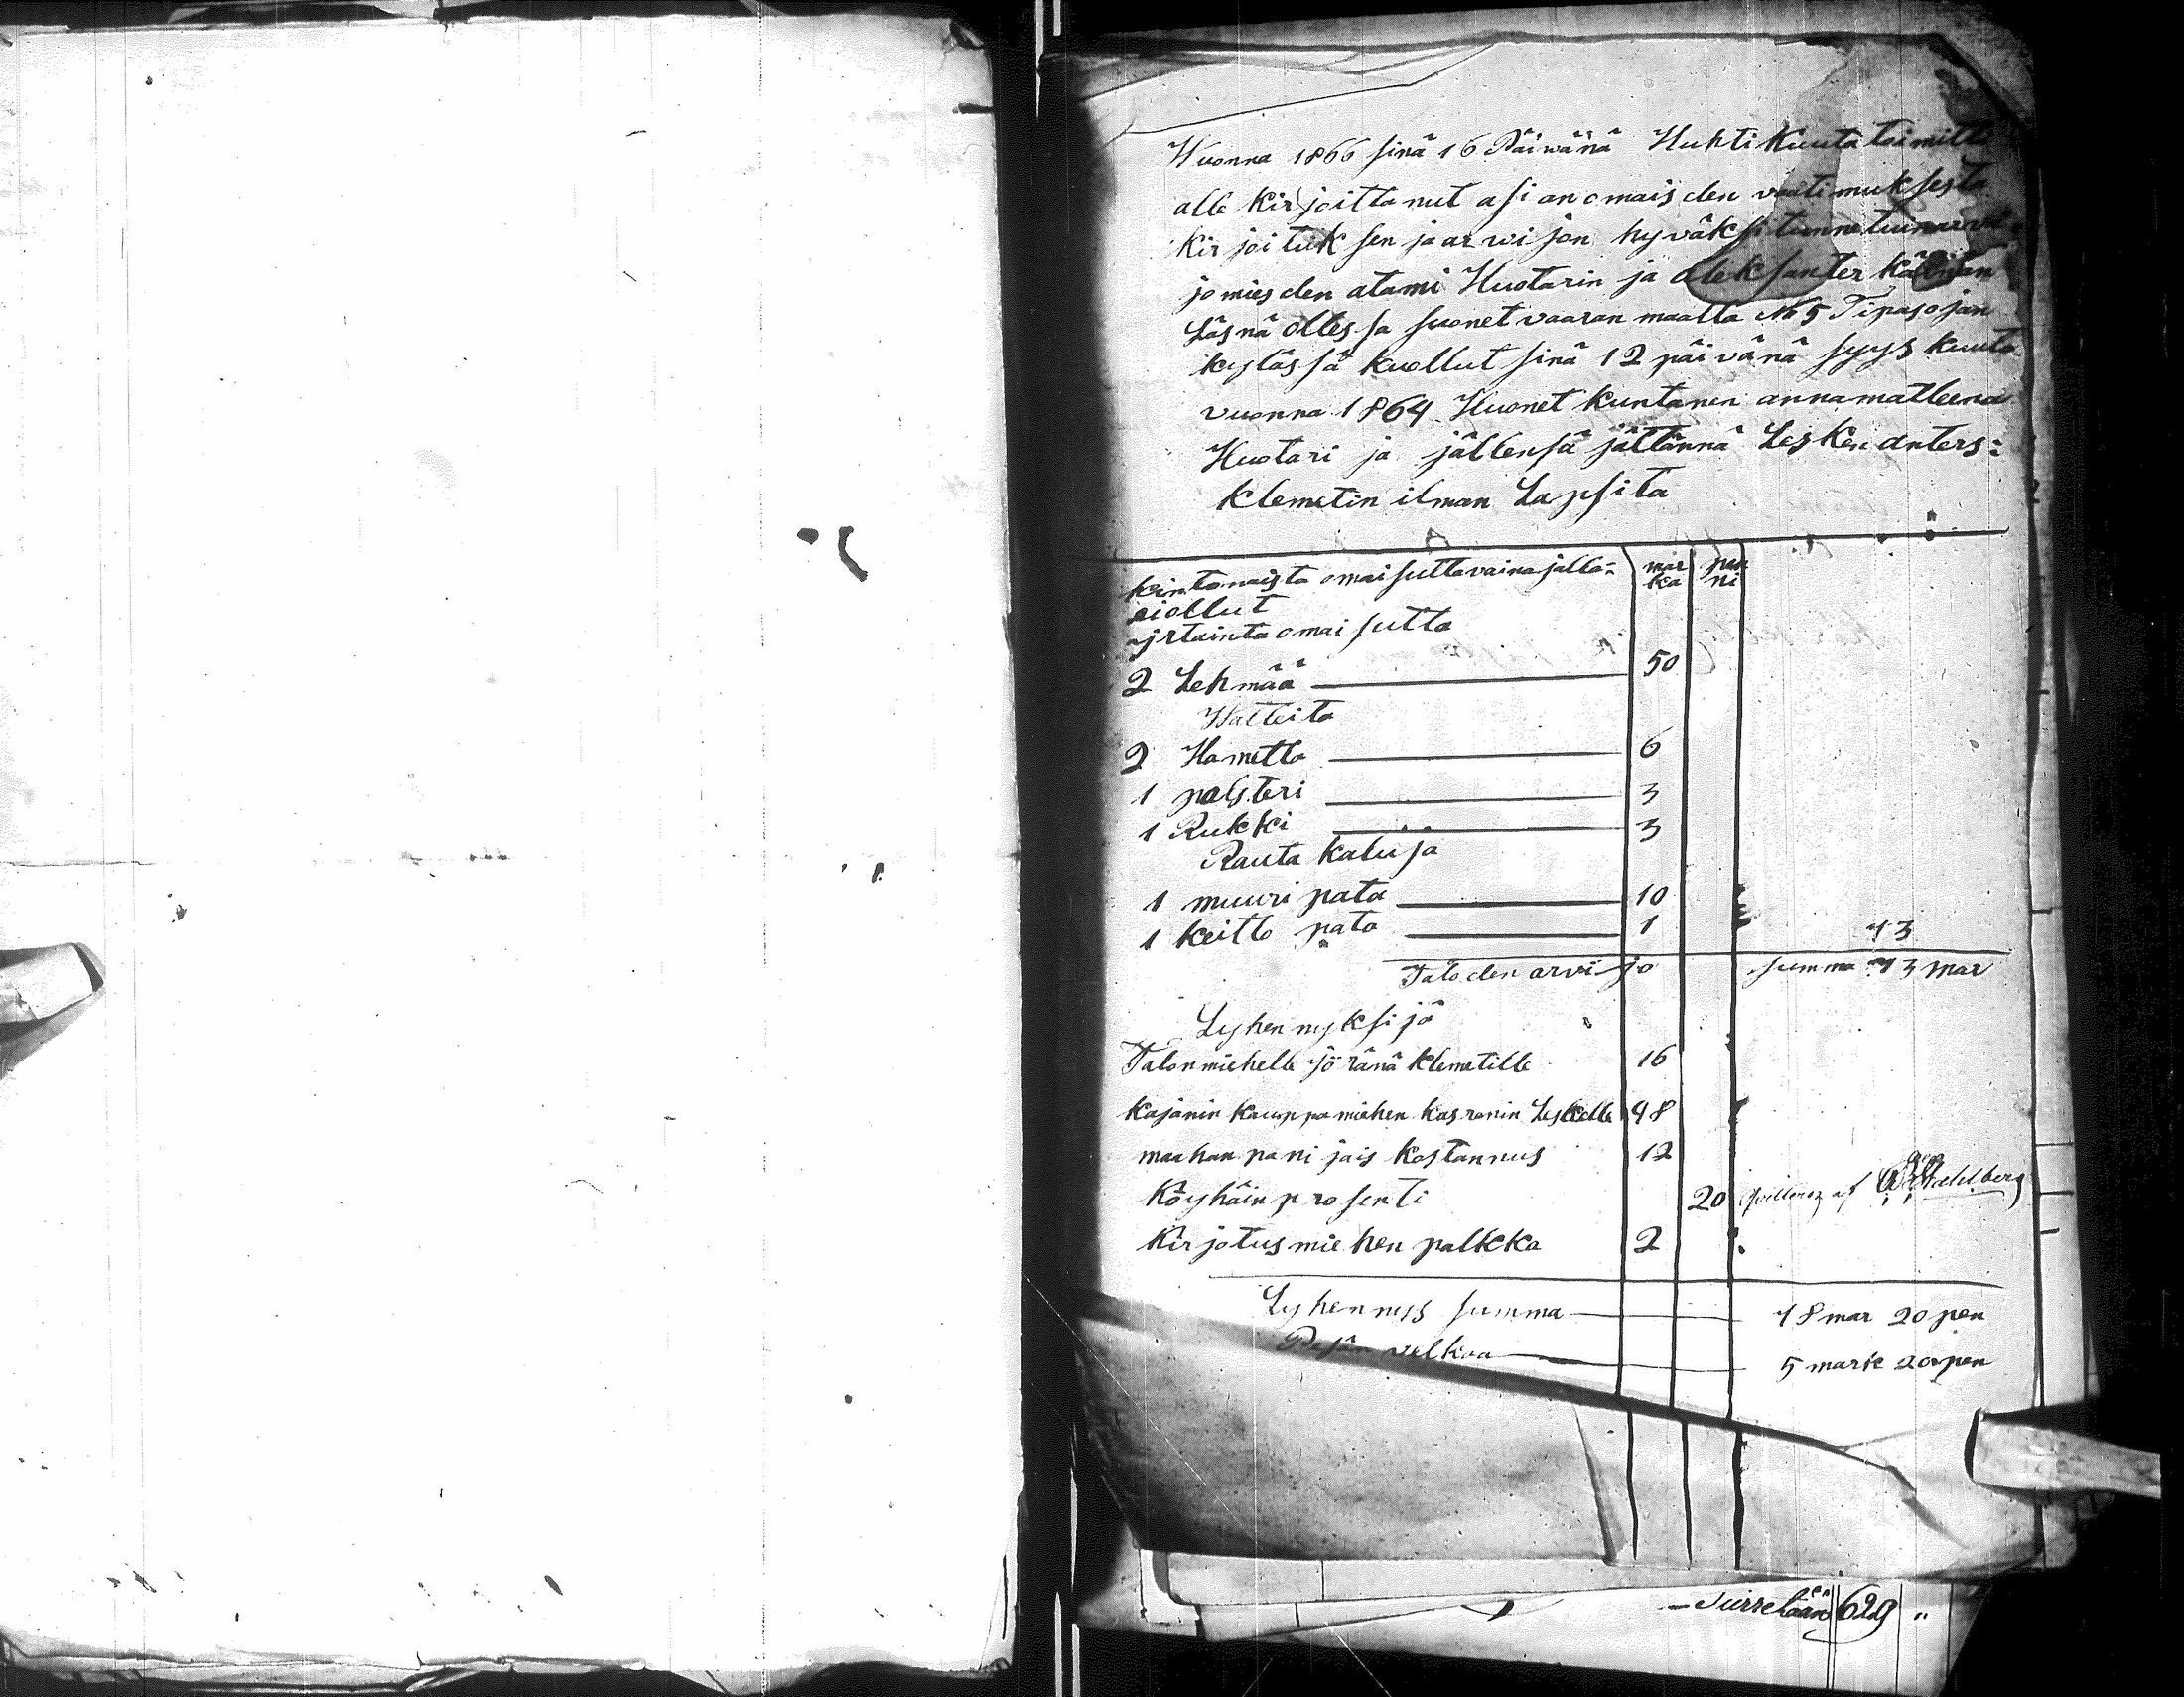 Wuonna 1866 sinä 16 Päiwänä Huhti kuuta toimitti
alle kirjoittanut asianomaisden vaatimuksesta
kirjoituksen ja arwijon hyväksi tunnetuin arvi
jo miesden atami Huotarin ja aleksanter
Läsnä ollessa suonetvaaran maalla No 5 Tipasojan
kylässä kuollut sinä 12 päivänä syys kuuta
vuonna 1864 Huonet kuntanen anna matleena
Huotari ja jällensä jättännä Lesken anters:
klemetin ilman Lapsita
kintonaista omaisutta vainajalla- mar ka pen ni
ei ollut
irtainta omaisutta
2 Lehmää 50
Watteita
2 Hametta 6
1 palsteri 3
1 Rukki 3
Rauta kaluja
1 muuri pata 10
1 keitto pata 1 73
Taloden arvijo summa 73 mar
Lyhennyksijä
Talonmiehelle Jöränä klemetille 16
kajanin kauppamiehen kasranin Leskelle 48
maahan pani jais kostannus 12
köyhäin prosenti 20 af Wahlberg
kirjotus miehen palkka 2
Lyhennys summa 78 mar 20 pen
Pesän velkaa 5 mark 20 pen
Siirretään 629 "